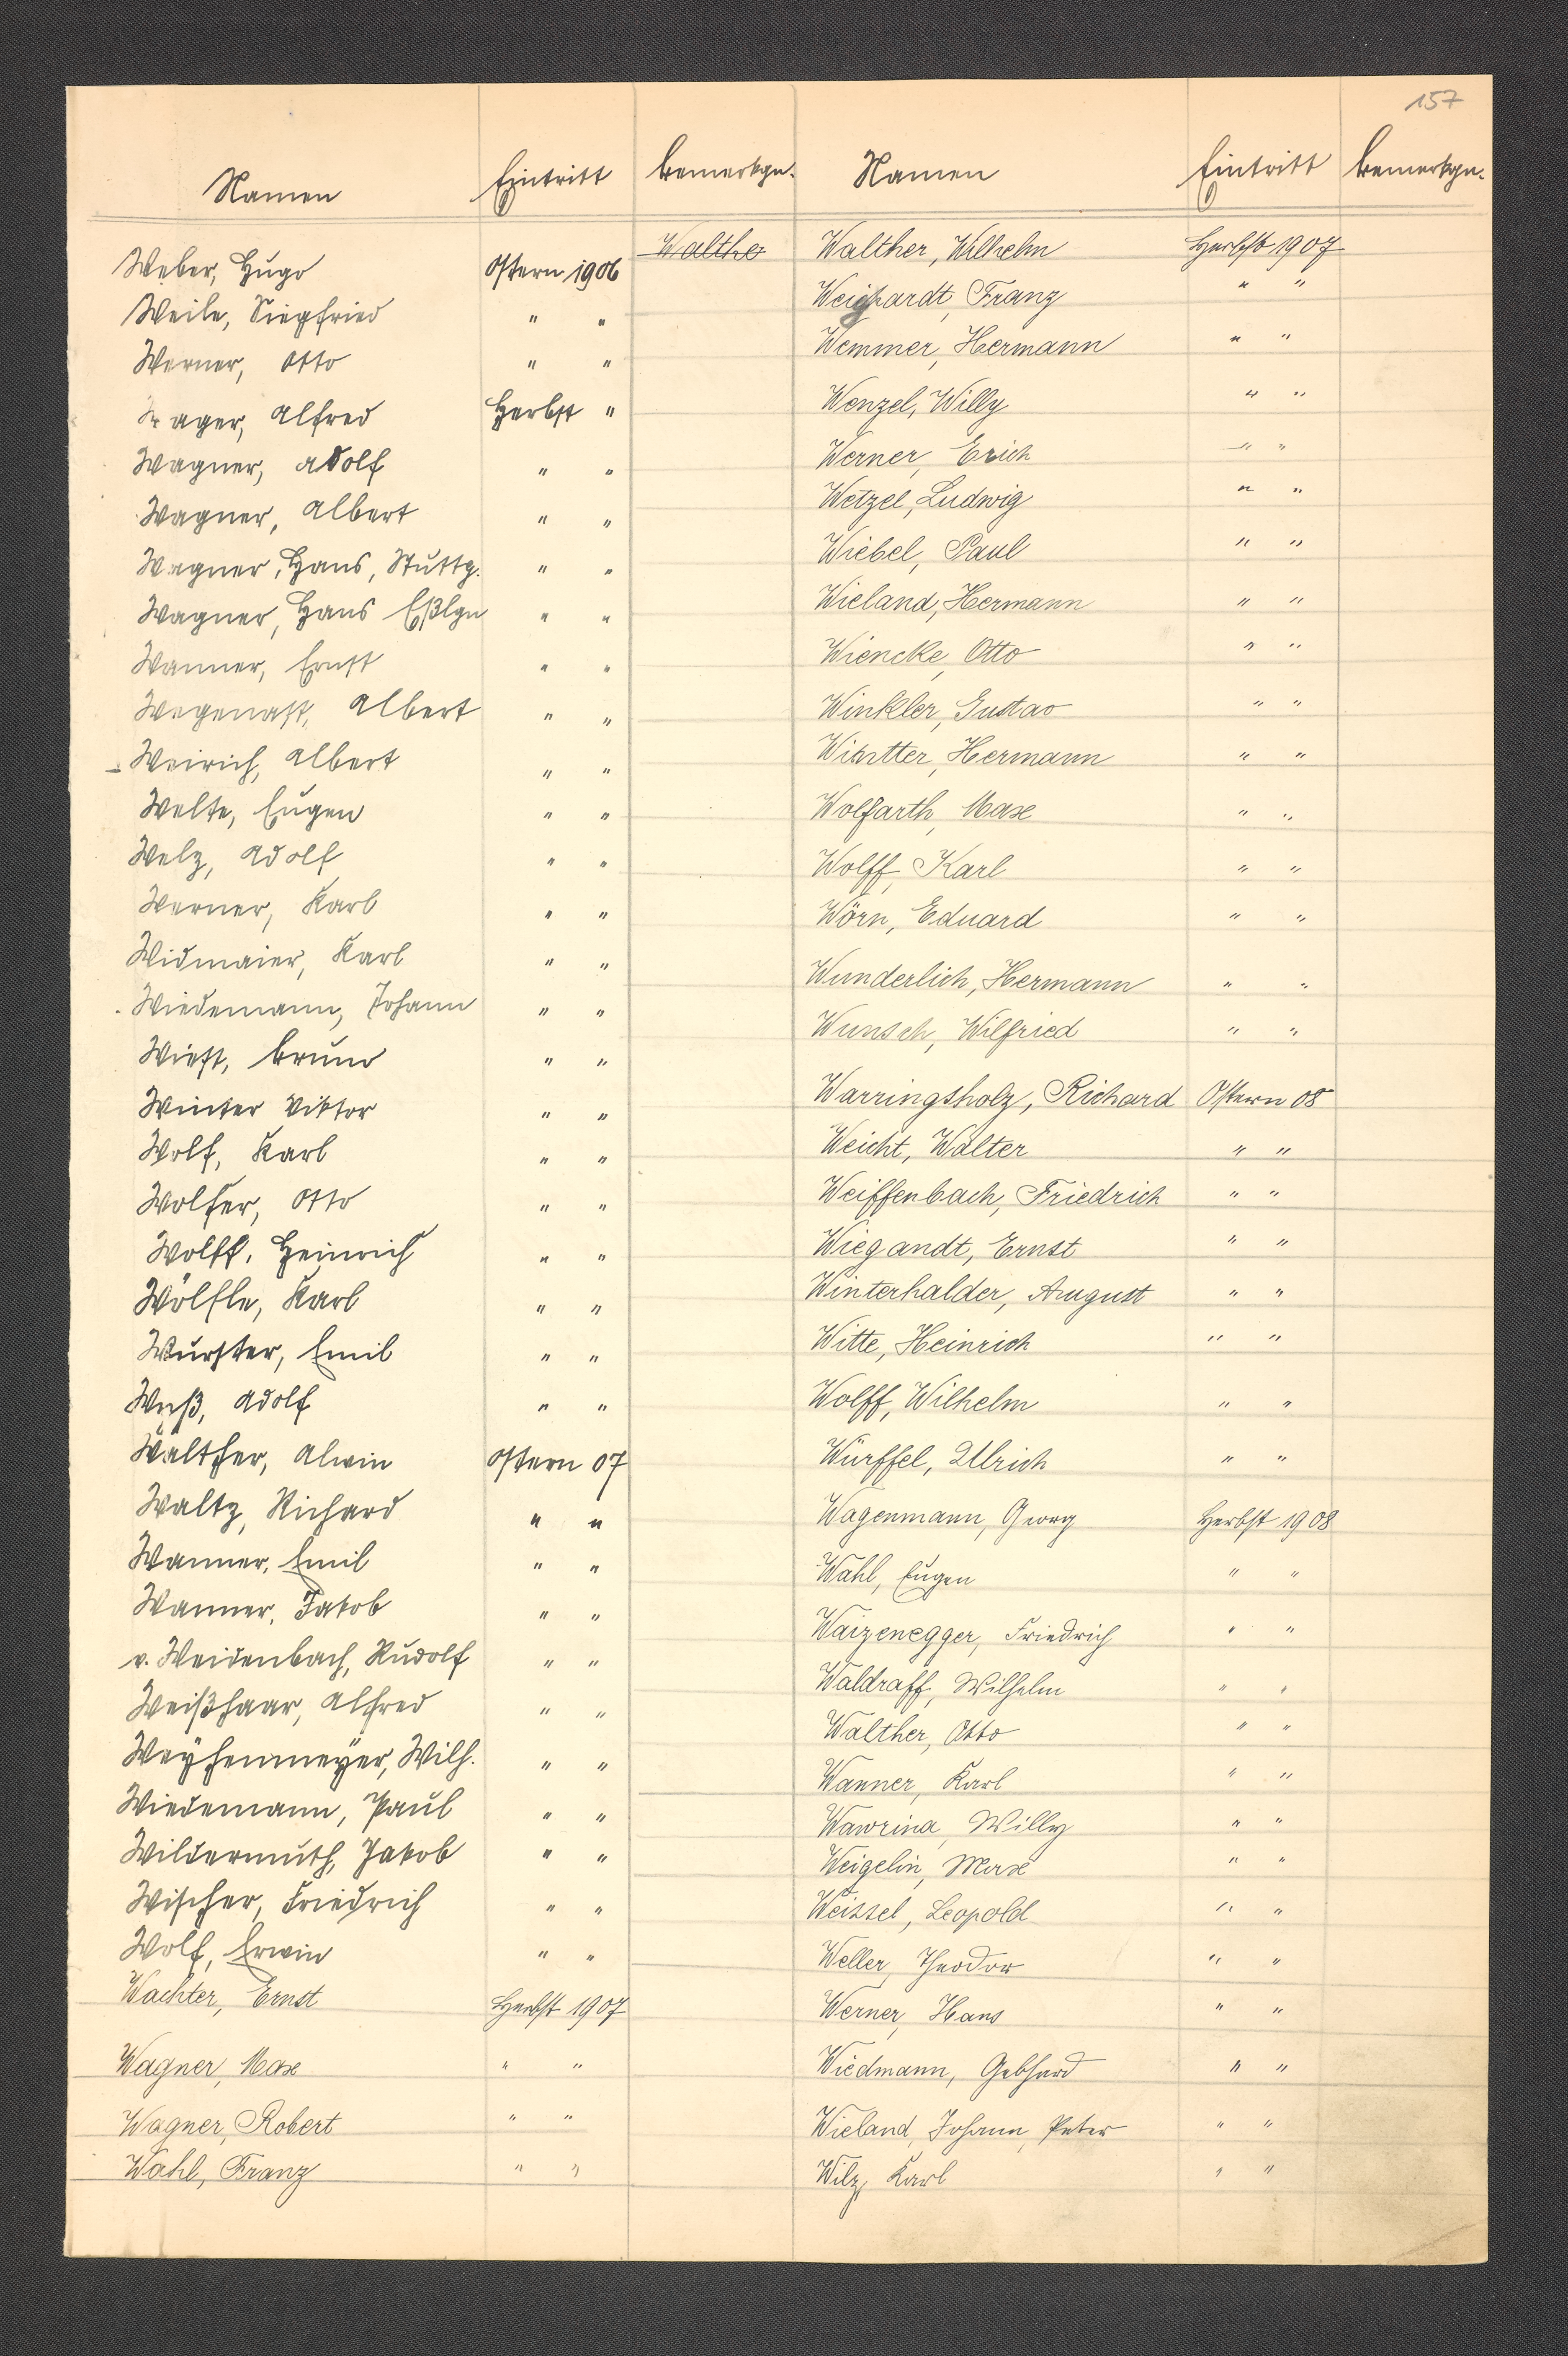 157
Namen Eintritt Bemerkgn.
Weber, Hugo Ostern 1906
Weile, Siegfried " "
Werner, Otto " "
ager, Alfred Herbst "
Wagner, Adolf " "
Wagner, Albert " "
Wagner, Hans, Stuttg. " "
Wagner, Hans Eßlgn " "
Wanner, Ernst " "
Wegenast, Albert " "
Weirich, Albert " "
Welte, Eugen " "
Welz, Adolf " "
Werner, Karl " "
Widmaier, Karl " "
Wiedemann, Johann " "
Wiest, Bruno " "
Winter Viktor " "
Wolf, Karl " "
Wolfer, Otto " "
Wolff, Heinrich " "
Wölfle, Karl " "
Wurster, Emil " "
Adolf " "
Walther, Alwin Ostern 07
Waltz, Richard " "
Wanner, Emil " "
Wanner, Jakob " "
v. Weidenbach, Rudolf " "
Weißhaar, Alfred " "
Weyhenmeyer, Wilh. " "
Wiedemann, Paul " "
Wildermuth, Jakob " "
Wischer, Friedrich " "
Wolf, Erwin " "
Wachter, Ernst Herbst 1907
Wagner, Max " "
Wagner, Robert " "
Wahl, Franz " "
Namen Eintritt Bemerkgn.
Walthe Walther, Wilhelm Herbst 1907
Weighardt, Franz " "
Wemmer, Hermann " "
Wenzel, Willy " "
Werner, Erich " "
Wetzel, Ludwig " "
Wiebel, Paul " "
Wieland, Hermann " "
Wiencke, Otto " "
Winkler, Gustav " "
Hermann " "
Wolfarth, Max " "
Wolff, Karl " "
Wörn, Eduard " "
Wunderlich, Hermann " "
Wunsch, Wilfried " "
Warringsholz, Richard Ostern 08
Weicht, Walter " "
Weiffenbach, Friedrich " "
Wiegandt, Ernst " "
Winterhalder, August " "
Witte, Heinrich " "
Wolff, Wilhelm " "
Würffel, Ulrich " "
Wagenmann, Georg Herbst 1908
Wahl, Eugen " "
Waizenegger, Friedrich " "
Waldraff, Wilhelm " "
Walther, Otto " "
Wanner, Karl " "
Wawrina, Willy " "
Weigelin, Max " "
Weissel, Leopold " "
Weller, Theodor " "
Werner, Hans " "
Wiedmann, Gebhard " "
Wieland, Johann, Peter " "
Wilz, Karl " "